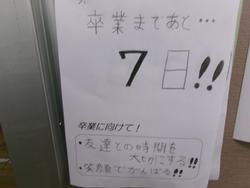 卒業まであと…
7日!!
卒業に向けて!
・友達との時間を
大切にする!!
・笑顔でがんばる!!